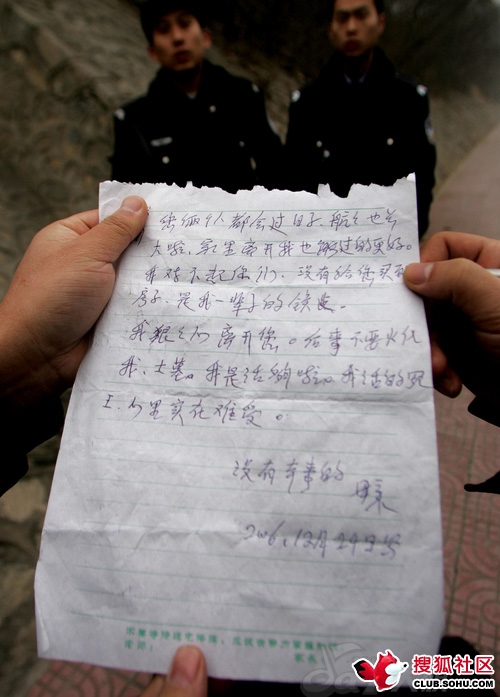 您俩个人都会过日子,航航也长
大啦,家里离开我也能过的更好。
我对不起你们,没有给您买
房子,是我一辈子的
我狠心们离开您。后事不要火化
我,土葬。我是活够啦。我活的
心里实在难受。
没有本事的
2006.12月29日
搜狐社区
CLUB.SOHU.COM